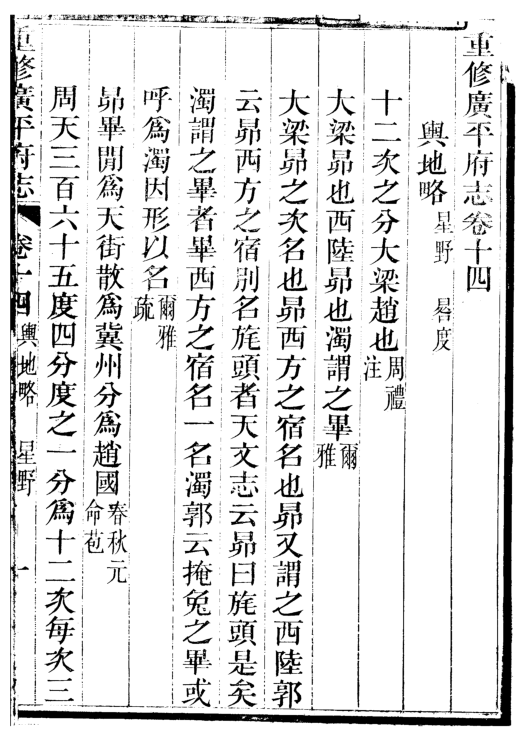 重修廣平府志卷十四
輿地略 星野 晷度
十二次之分大梁趙也周禮注
大梁昴也西陸昴也濁謂之畢爾雅
大梁昴之次名也昴西方之宿名也昴又謂之西陸郭
云昴西方之宿別名旄頭者天文志云昴曰旄頭是矣
濁謂之畢者畢西方之宿名一名濁郭云掩兔之畢或
呼爲濁因形以名爾雅疏
昴畢閒爲天街散爲冀州分爲趙國春秋元命苞
周天三百六十五度四分度之一分爲十二次每次三
重修廣平府志 卷十四 輿地略 星野 一